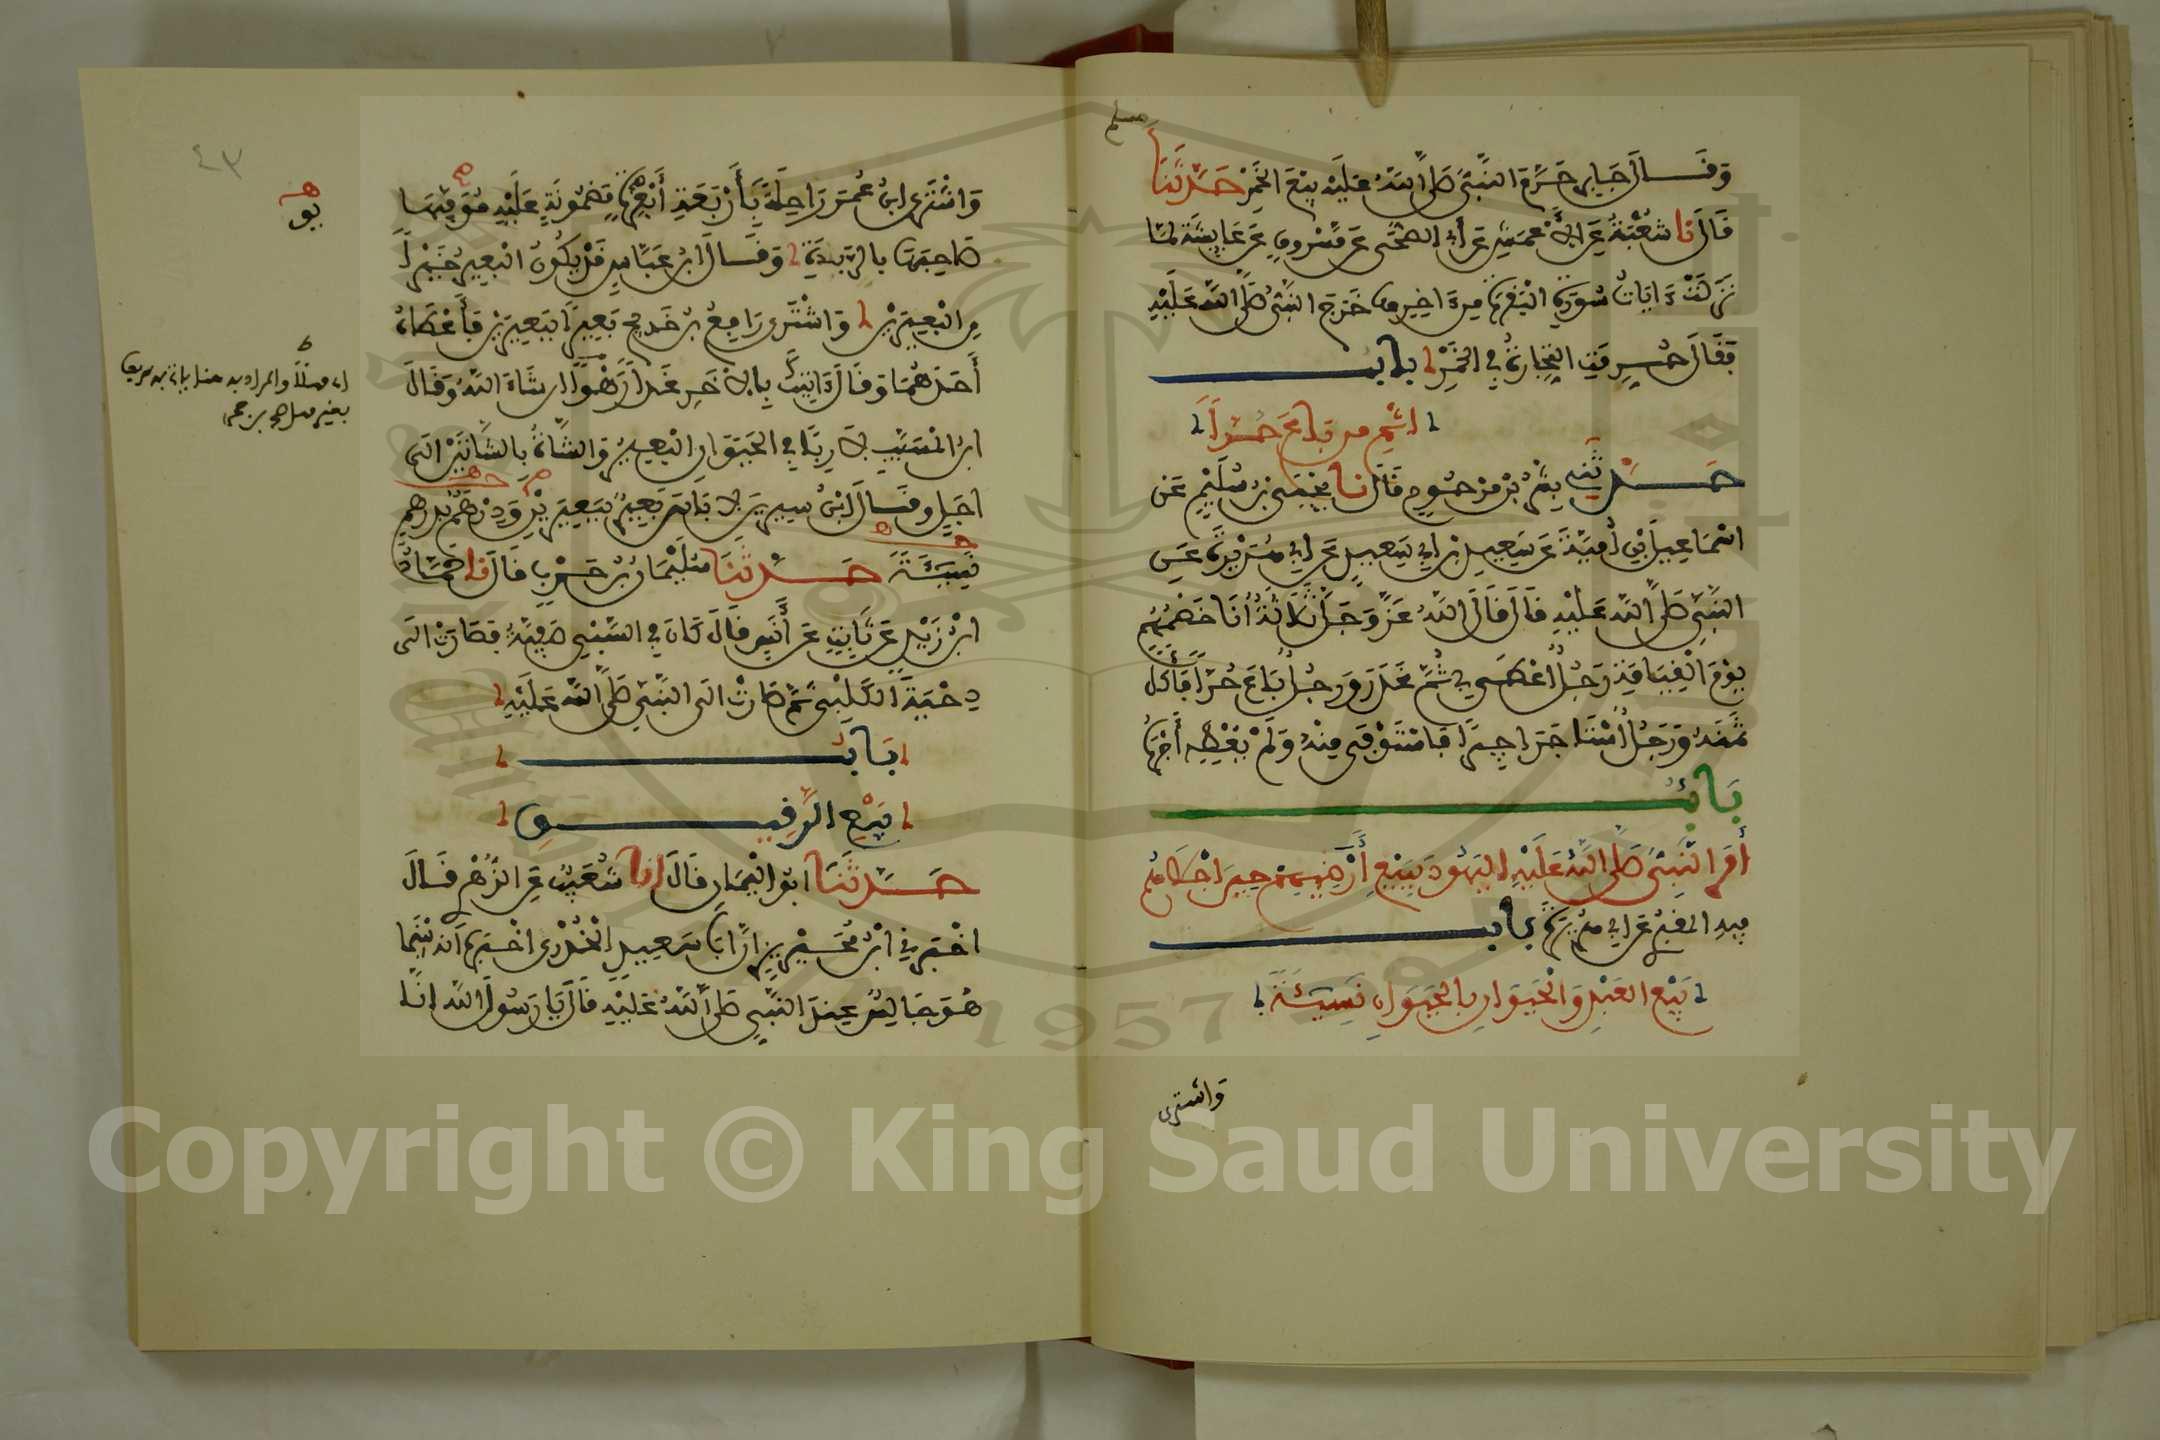 مسلم
وَقَالَ جَابِر حَرَّمَ النَّبِيُّ صَلَّى اللَّهُ عَلَيْهِ بَيْعَ الْخَمْرِ حَدَّثَنَا
قَالَ نا شُعْبَةُ عَنِ الأَعْمَشِ عَنْ أَبِي الضُّحَى عَنْ مَسْرُوقٍ عَنْ عَايِشَةَ لَمَّا
نَزَلَتْ ءَايَاتُ سُورَةِ الْبَقَرَةِ مِنْ ءَاخِرِهَا خَرَجَ النَّبِيُّ صَلَّى اللَّهُ عَلَيْهِ
فَقَالَ حُرِّمَتِ التِّجَارَةُ فِي الْخَمْرِ بَابُ
اثْمِ مَن بَاعَ حُرًّا
حَدَّثَنِي بِشْرُ بْنُ مَرْحُومٍ قَالَ نا يَحْيَى بْنُ سُلَيْمٍ عَنْ
اسْمَاعِيلَ بْنِ أُمَيَّةَ عَنْ سَعِيدِ بْنِ أَبِي سَعِيدٍ عَنْ أَبِي هُرَيْرَةَ عَنِ
النَّبِيِّ صَلَّى اللَّهُ عَلَيْهِ قَالَ قَالَ اللَّهُ عَزَّ وَجَلَّ ثَلَاثَةٌ أَنَا خَصْمُهُمْ
يَوْمَ الْقِيَامَةِ رَجُلٌ أَعْطَى بِي ثُمَّ غَدَرَ وَرَجُلٌ بَاعَ حُرًّا فَأَكَلَ
ثَمَنَهُ وَرَجُلٌ اسْتَاجَرَ اجِيرًا فَاسْتَوْفَى مِنْهُ وَلَمْ يُعْطِهِ أَجْرَهُ
بَابُ
أَمَرَ النَّبِيُّ صَلَّى اللَّهُ عَلَيْهِ الْيَهُودَ بِبَيْعِ أَرَضِيهِمْ حِينَ اجْلَاهُمْ
فِيهِ الْمَقْبُرِيُّ عَنْ أَبِي هُرَيْرَةَ بَابُ
بَيْعِ الْعَبْدِ وَالْحَيَوَانِ بِالْحَيَوَانِ نَسِيئَةً
وَاشترى
٤٣
وَاشْتَرَى ابْنُ عُمَرَ رَاحِلَةً بِأَرْبَعَةِ أَبْعِرَةٍ مَضْمُونَةٍ عَلَيْهِ يُوَفِّيهَا
صَاحِبَهَا بِالرَّبَذَةِ وَقَالَ ابْنُ عَبَّاسٍ قَدْ يَكُونُ الْبَعِيرُ خَيْرًا
مِنَ الْبَعِيرَيْنِ وَاشْتَرَى رَافِعُ بْنُ خَدِيجٍ بَعِيرًا بِبَعِيرَيْنِ فَأَعْطَاهُ
أَحَدَهُمَا وَقَالَ ءَاتِيكَ بِالآخَرِ غَدًا رَهْوًا ان شَاءَ اللَّهُ وَقَالَ
ابْنُ الْمُسَيِّبِ لَا رِبَا فِي الْحَيَوَانِ الْبَعِيرُ وَالشَّاةُ بِالشَّاتَيْنِ الَى
اجَلٍ وَقَالَ ابْنُ سِيرِينَ لَا بَاسَ بَعِيرٌ بِبَعِيرَيْنِ وَدِرْهَمٌ بِدِرْهَمٍ
نَسِيئَةً حَدَّثَنَا سُلَيْمَانُ بْنُ حَرْبٍ قَالَ نا حَمَّادُ
ابْنُ زَيْدٍ عَنْ ثَابِتٍ عَنْ أَنَسٍ قَالَ كَانَ فِي السَّبْيِ صَفِيَّةُ فَصَارَتْ الَى
دِحْيَةَ الْكَلْبِيِّ ثُمَّ صَارَتْ الَى النَّبِيِّ صَلَّى اللَّهُ عَلَيْهِ
بَابُ
بَيْعِ الرَّقِيقِ
حَدَّثَنَا ابُو الْيَمَانِ قَالَ انا شُعَيْبٌ عَنِ الزُّهْرِيِّ قَالَ
اخْبَرَنِي ابْنُ مُحَيْرِيزٍ انَّ ابَا سَعِيدٍ الْخُدْرِيَّ اخْبَرَهُ انَّهُ بَيْنَمَا
هُوَ جَالِسٌ عِنْدَ النَّبِيِّ صَلَّى اللَّهُ عَلَيْهِ قَالَ يَا رَسُولَ اللَّهِ انَّا
Copyright © King Saud University
1957